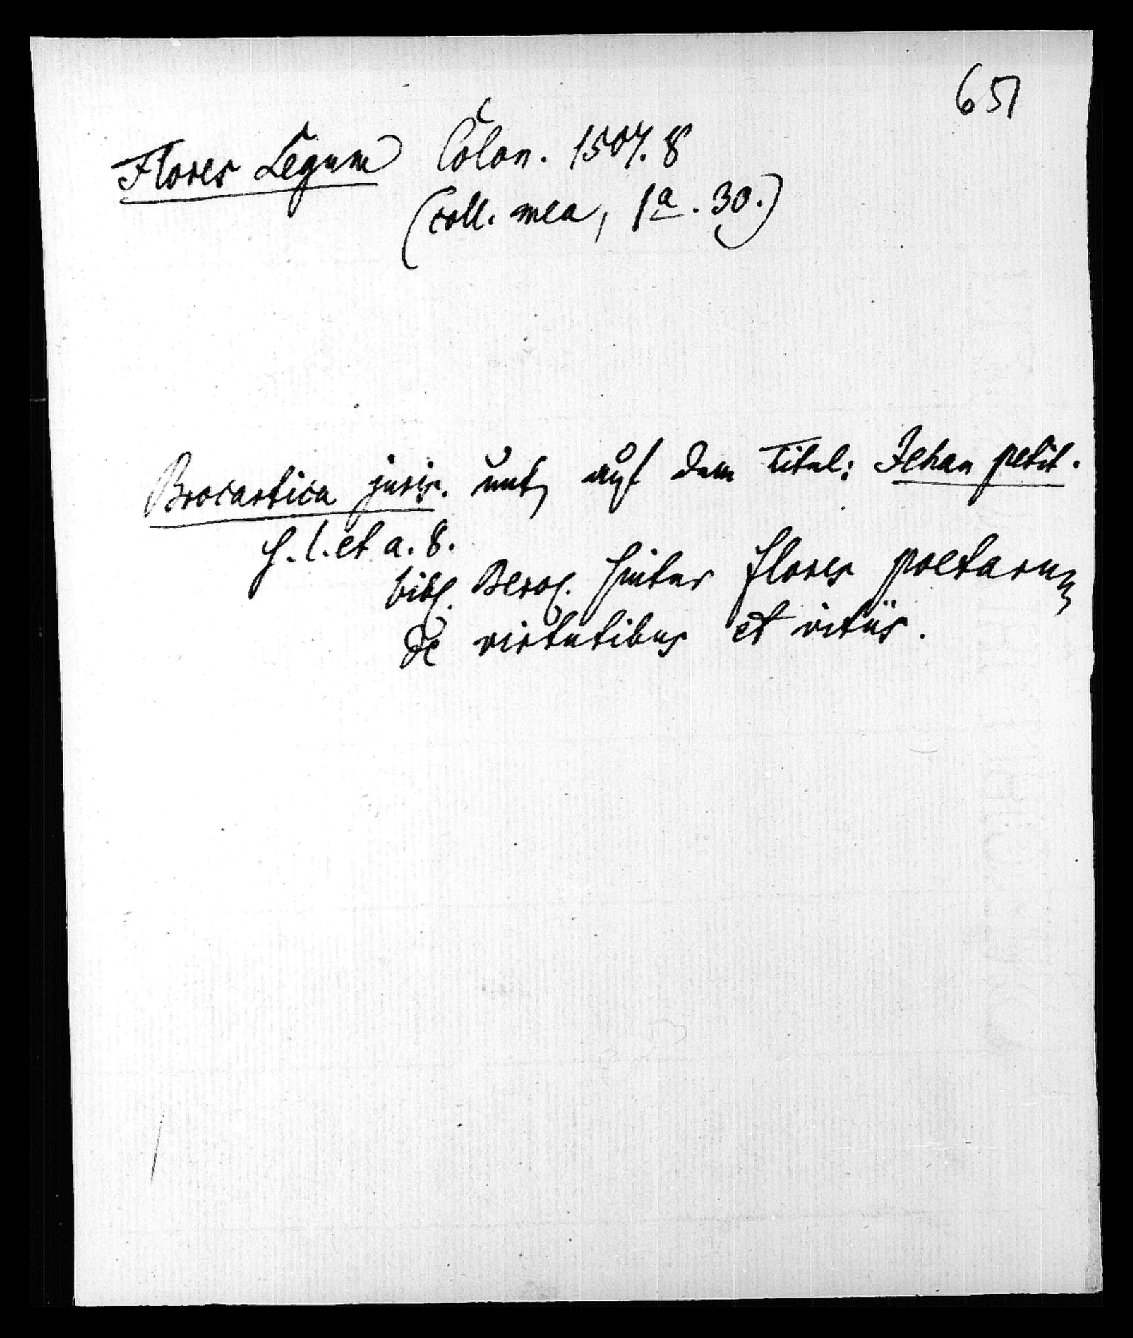 651
Flores Legum Colon. 1507. 8
(coll. mea, 1a. 30.)
Brocartica juris. unt, auf dem Titel: Jehan petit.
s. l. et a. 8.
bibl. Berol. hinter flores poetarum
de virtutibus et vitiis.